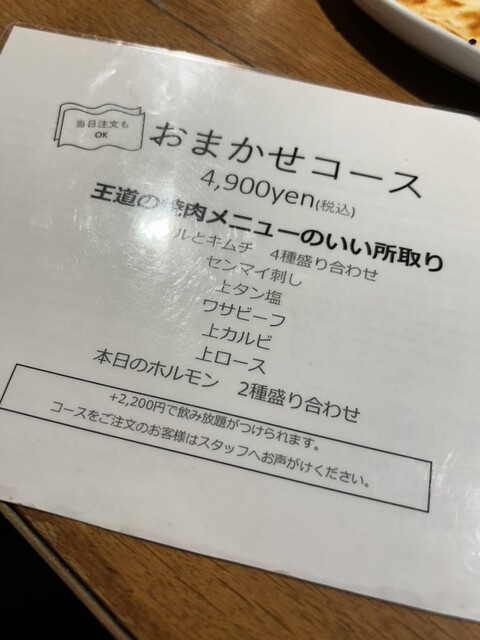 当日注文も
OK
おまかせコース
4,900yen(税込)
王道の焼肉メニューのいい所取り
ルとキムチ 4種盛り合わせ
センマイ刺し
上タン塩
ワサビーフ
上カルビ
上ロース
本日のホルモン 2種盛り合わせ
+2,200円で飲み放題がつけられます。
コースをご注文のお客様はスタッフへお声がけください。